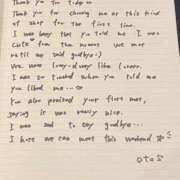 Thank you for today
Thank you for choosing me at this kind
of shop for the first time.
I was happy that you told me I was
cute from the moment we met
until we said goodbye :)
We were lovey-dovey like lovers.
I was so touched when you told me
you liked me
You also praised your first meet,
saying it was really nice.
I was sad to say goodbye...
I hope we can meet this weekend